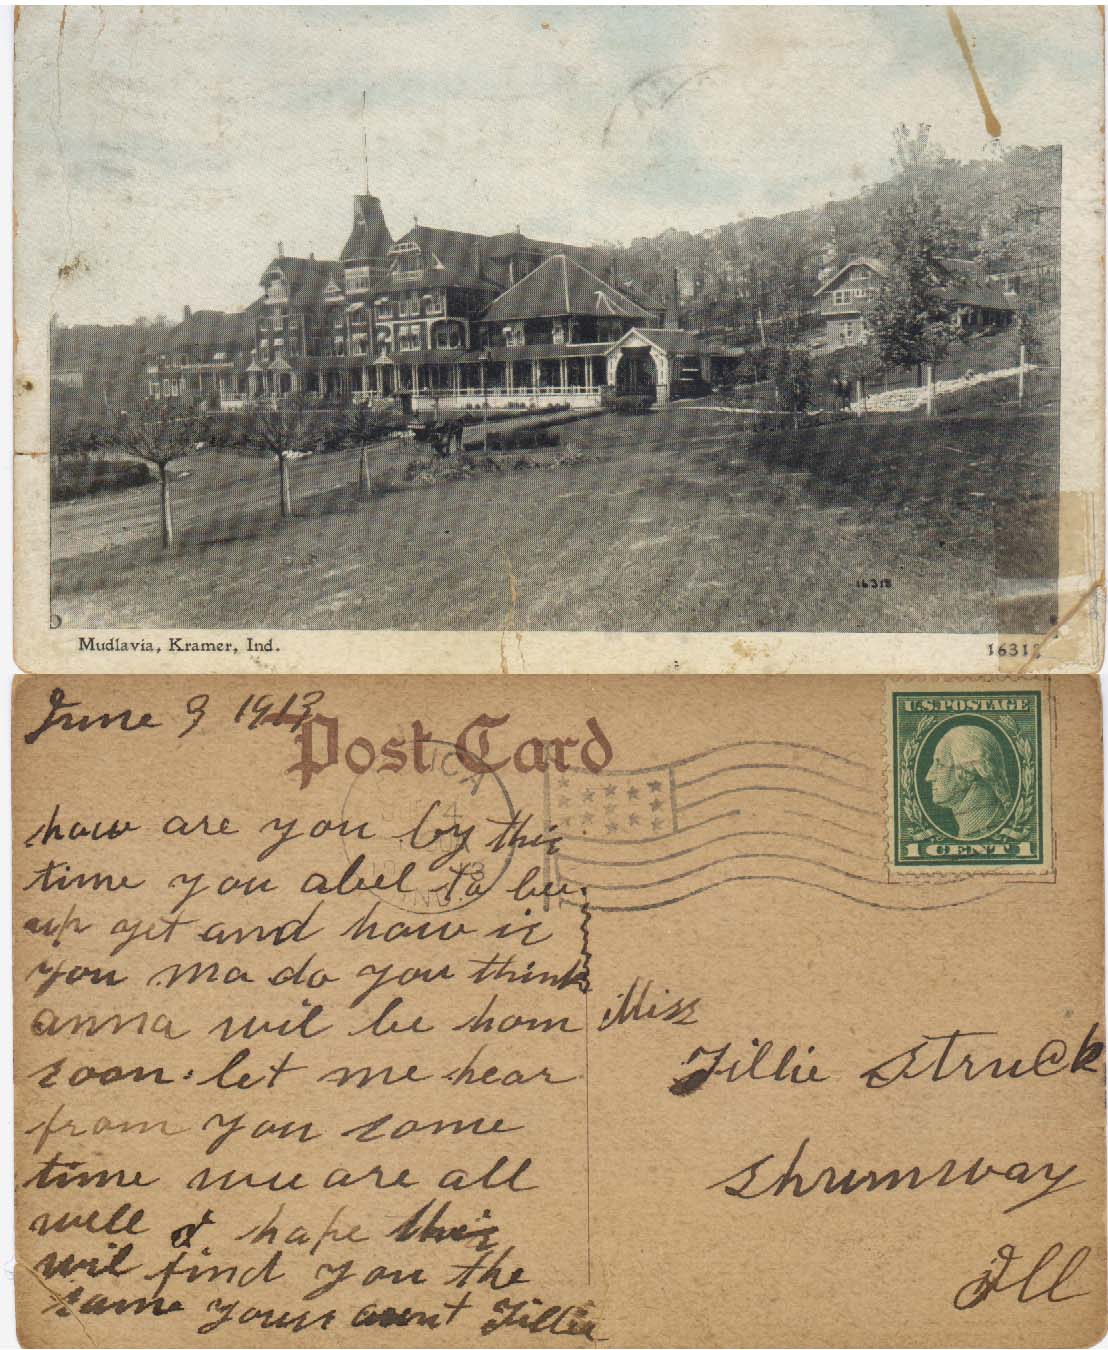 16318
Mudlavia, Kramer, Ind.
1631
June 9 1913
Post Card
U.S. POSTAGE
1 CENT 1
how are you by this
time you abel to be
up yet and how is
you ma do you think
anna wil be hom
soon. let me hear
from you some
time wee are all
well & hope this
wil find you the
same yours aunt Tillie
Miss
Tillie Struck
Shrumway
Ill